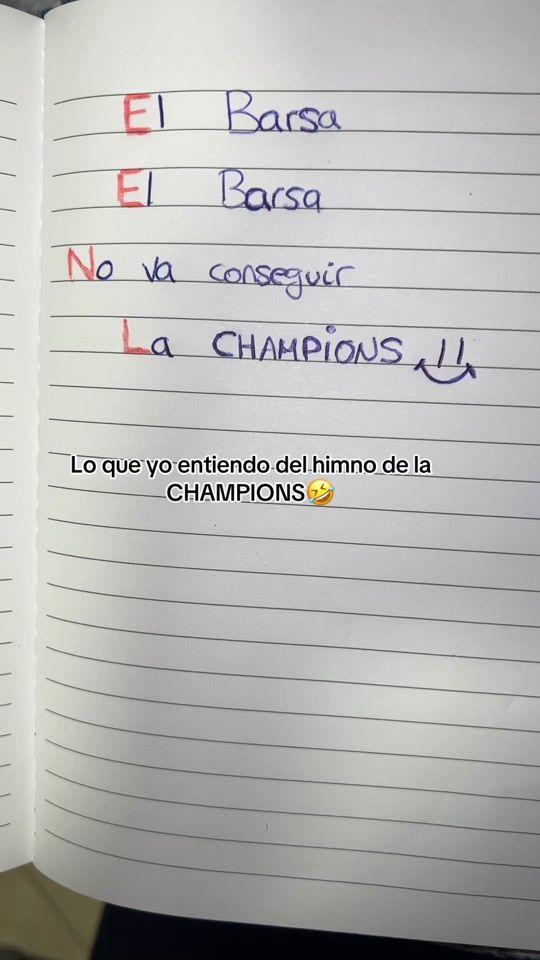 El Barsa
El Barsa
No va conseguir
La CHAMPiONS
Lo que yo entiendo del himno de la
CHAMPIONS🤣